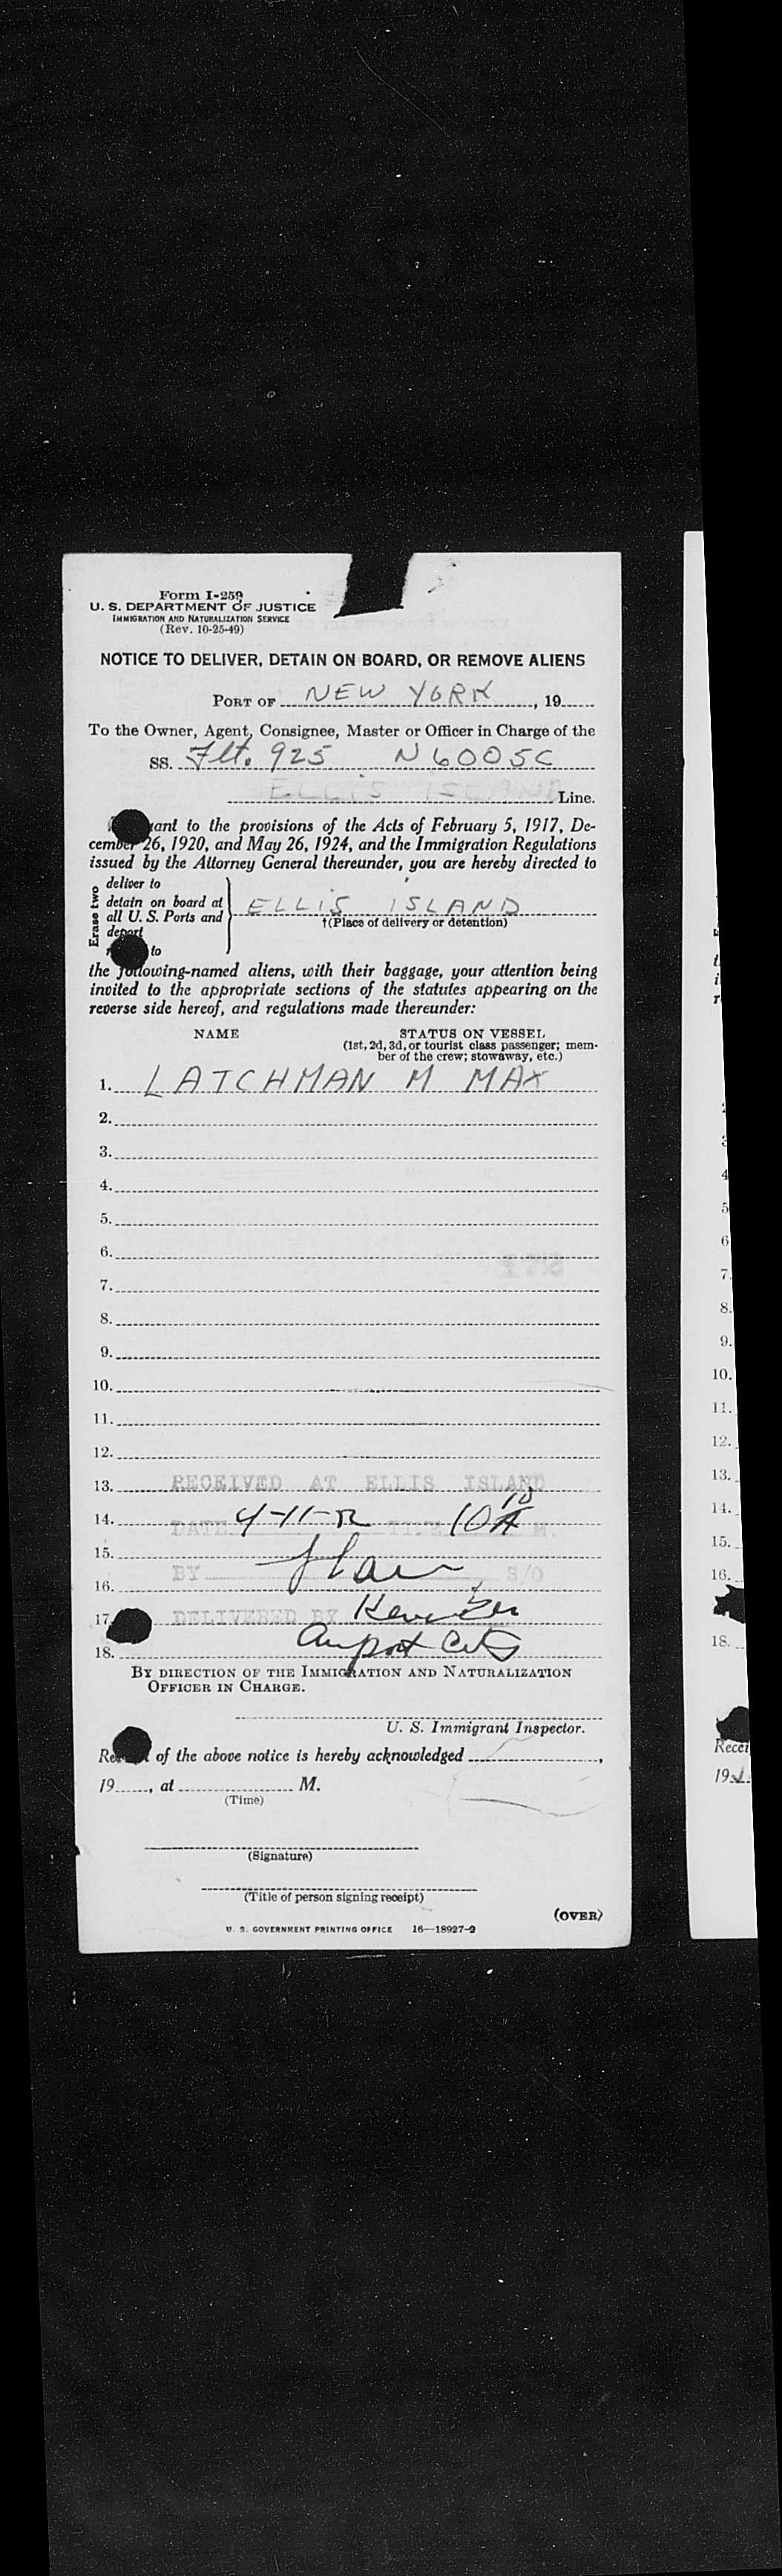 Form I-259
U. S. DEPARTMENT OF JUSTICE
IMMIGRATION AND NATURALIZATION SERVICE
(Rev. 10-25-49)
NOTICE TO DELIVER, DETAIN ON BOARD, OR REMOVE ALIENS
PORT OF NEW YORK, 19
To the Owner, Agent, Consignee, Master or Officer in Charge of the
SS. Flt. 925 N6005C
ELLIS ISLAND Line.
to the provisions of the Acts of February 5, 1917, De-
cember 26, 1920, and May 26, 1924, and the Immigration Regulations
issued by the Attorney General thereunder, you are hereby directed to
Erase two
deliver to
detain on board at
all U. S. Ports and
deport
to
ELLIS ISLAND
†(Place of delivery or detention)
the following-named aliens, with their baggage, your attention being
invited to the appropriate sections of the statutes appearing on the
reverse side hereof, and regulations made thereunder:
NAME STATUS ON VESSEL
(1st, 2d, 3d, or tourist class passenger; mem-
ber of the crew; stowaway, etc.)
1. LATCHMAN M MAX
2.
3.
4.
5.
6.
7.
8.
9.
10.
11.
12.
13. RECEIVED AT ELLIS ISLAND
14. DATE 4-11-52 TIME 10 10 A M.
15.
BY S/O
16.
17. DELIVERED BY
18. Airport
BY DIRECTION OF THE IMMIGRATION AND NATURALIZATION
OFFICER IN CHARGE.
U. S. Immigrant Inspector.
of the above notice is hereby acknowledged ,
19 , at M.
(Time)
(Signature)
(Title of person signing receipt)
(OVER)
U. S. GOVERNMENT PRINTING OFFICE 16—18927-2
4
5
6
7.
8.
9.
10.
11.
12.
13.
14.
15.
16.
18.
Recei
19